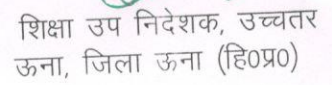 शिक्षा उप निदेशक, उच्चतर
ऊना, जिला ऊना (हि0प्र0)